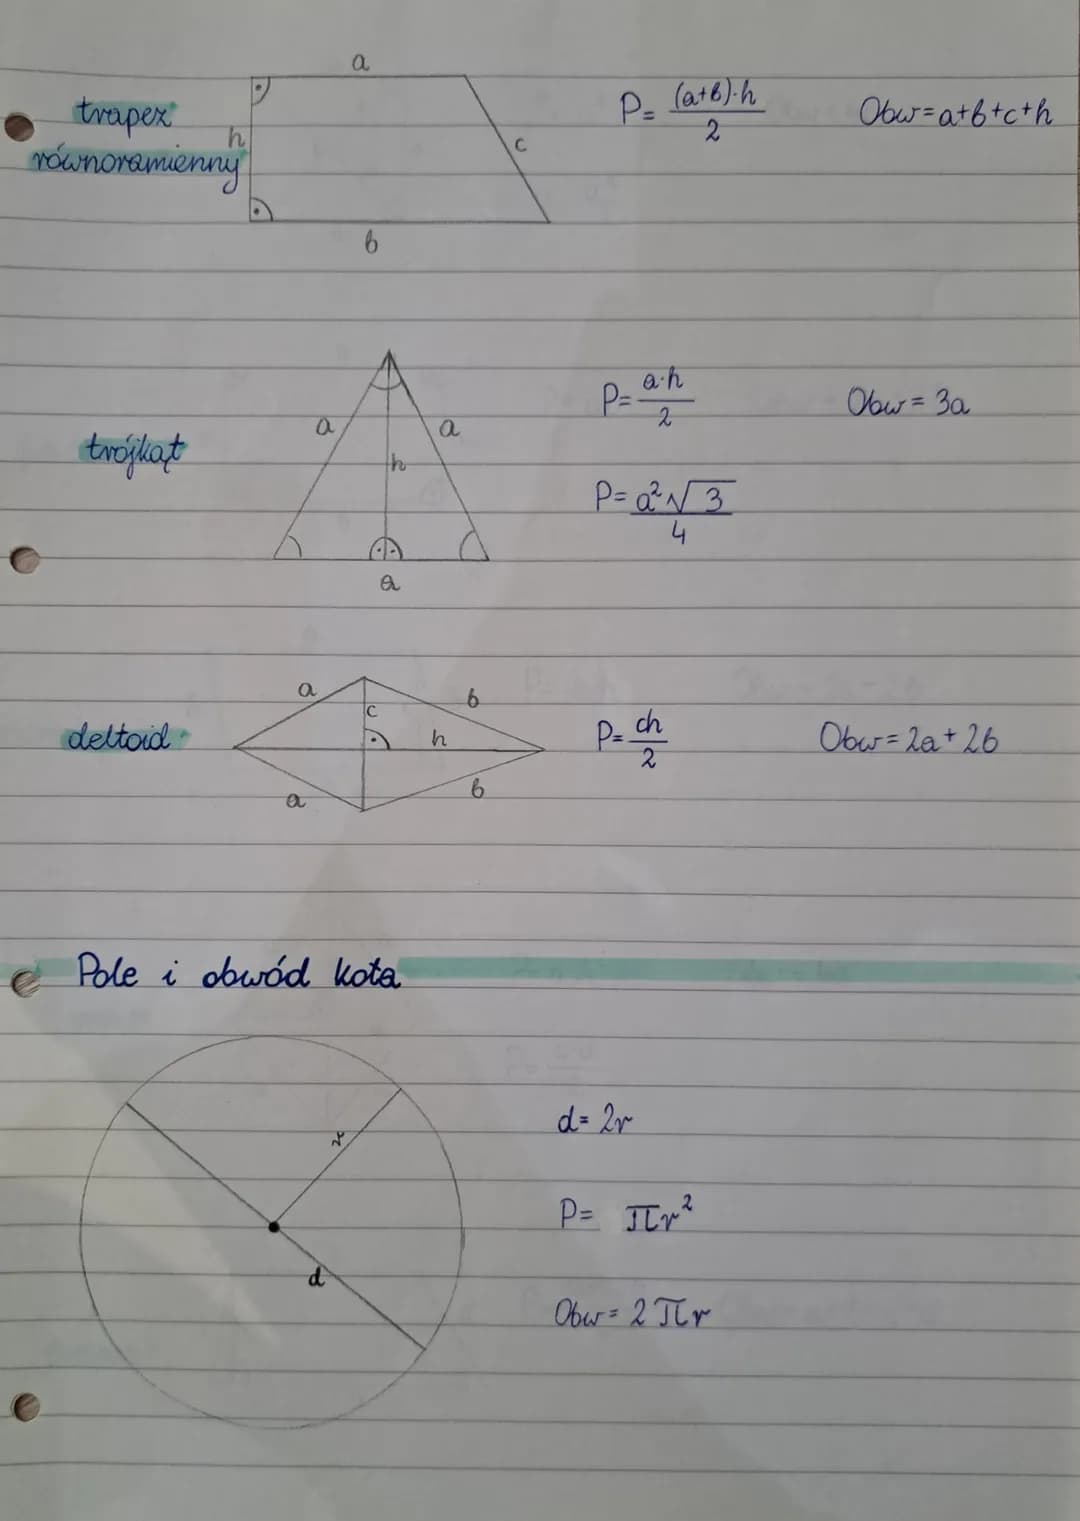 a
trapez
równoramienny
h
c
b
P= (a+b)·h
2
Obw=a+b+c+h
trójkąt
a
a
h
a
P= a·h
2
Obw= 3a
P= a²√3
4
deltoid
a
b
c
h
a
b
P= ch
2
Obw=2a+2b
Pole i obwód koła
r
d
d= 2r
P= πr²
Obw= 2πr